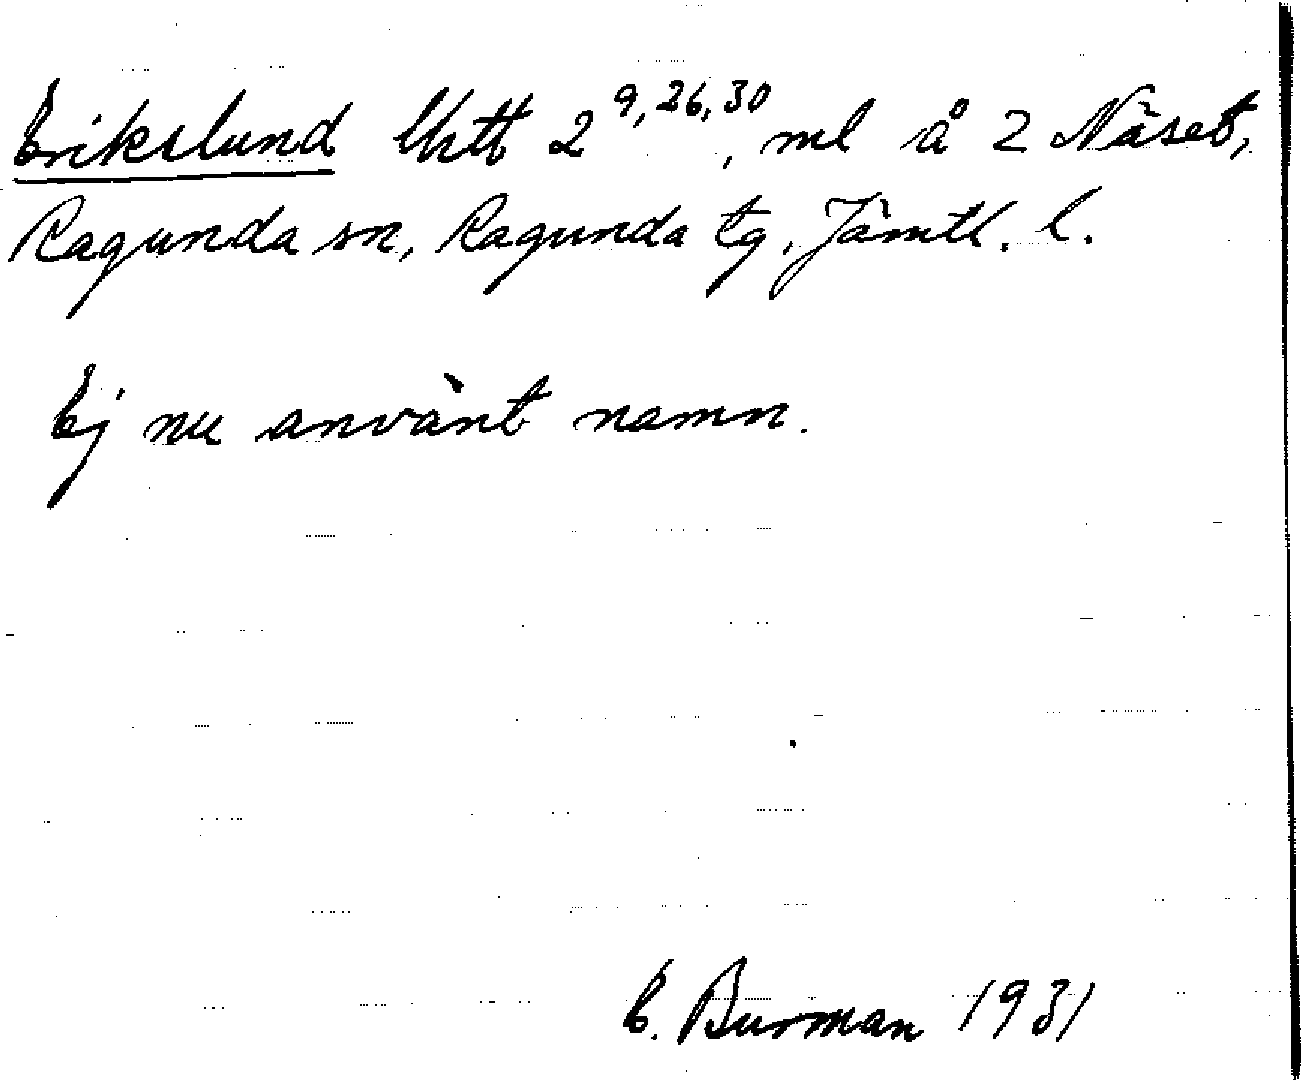 Erikslund lht 2 9,26,30, ml å 2 Näset,
Ragunda sn, Ragunda tg, Jämtl. l.
Ej nu använt namn.
E. Burman 1931